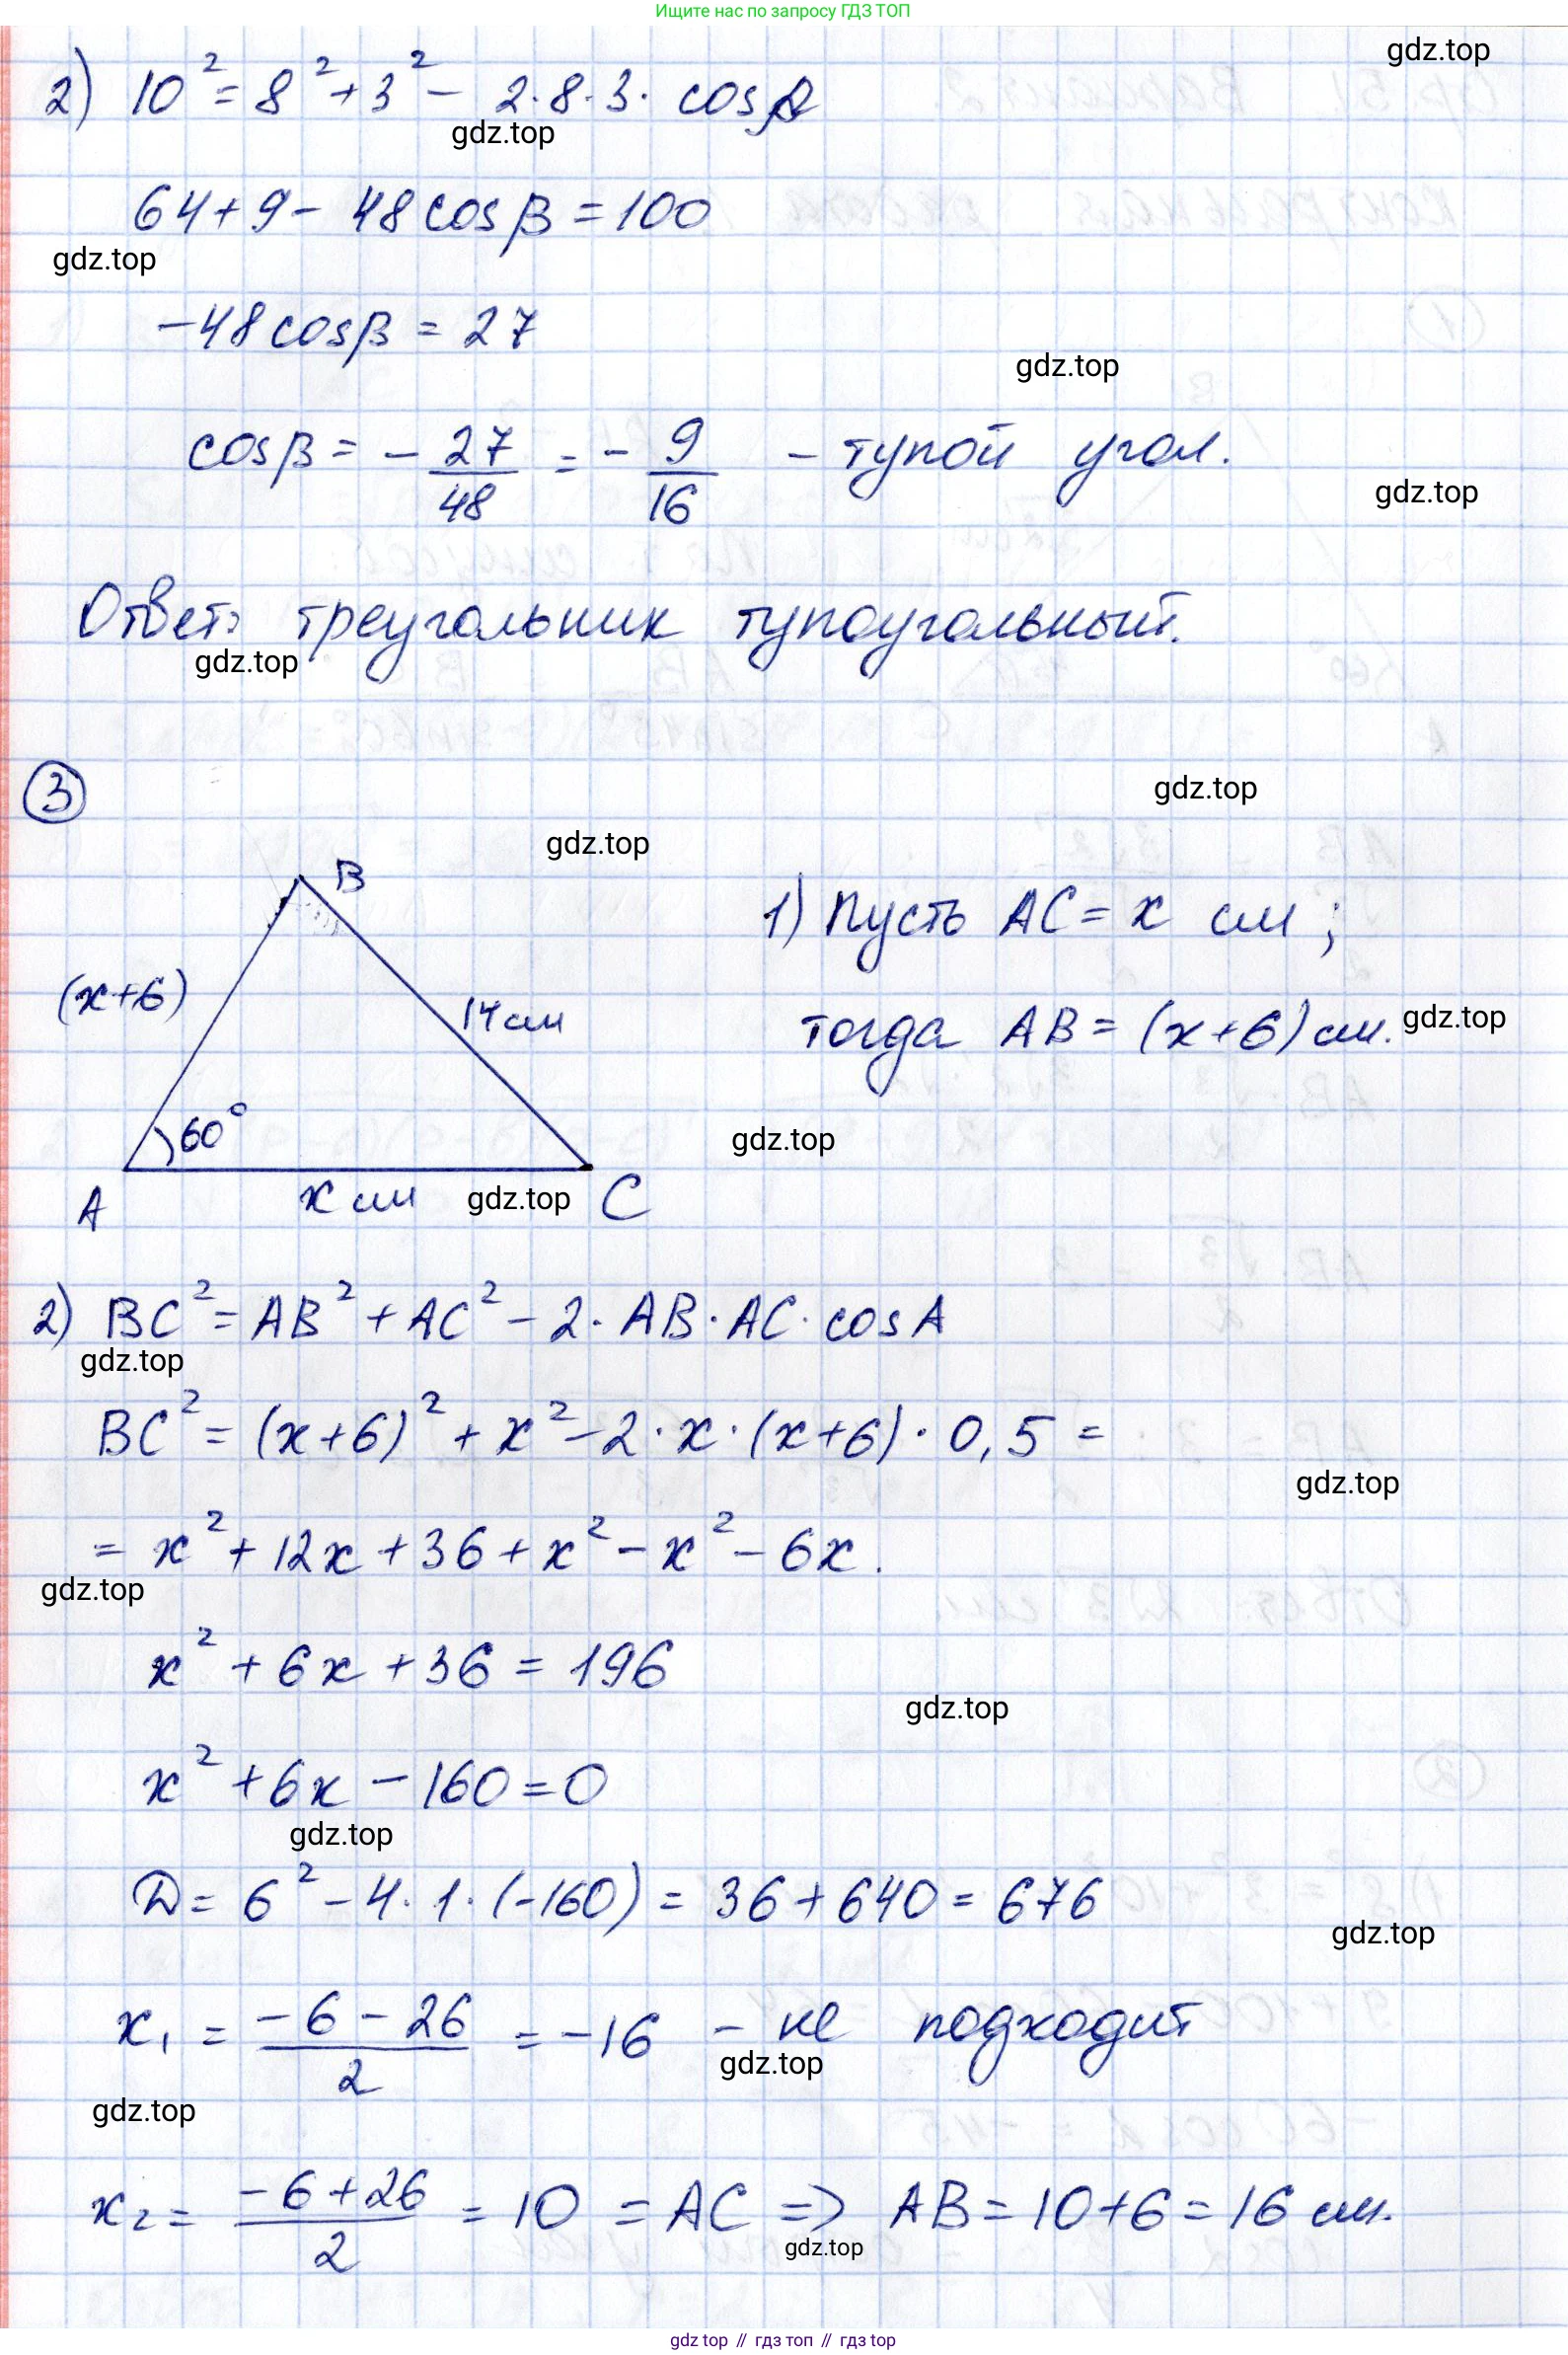 Ищите нас по запросу ГДЗ ТОП
gdz.top
2) 10² = 8² + 3² - 2·8·3· cos β
gdz.top
64 + 9 - 48 cos β = 100
gdz.top
-48 cos β = 27
gdz.top
cos β = - 27/48 = - 9/16 - тупой угол.
gdz.top
Ответ: треугольник тупоугольный.
gdz.top
3
gdz.top
gdz.top
B
1) Пусть AC = x см;
(x+6)
14 см
тогда AB = (x+6) см.
gdz.top
60°
gdz.top
A
x см
gdz.top
C
2) BC² = AB² + AC² - 2· AB· AC· cos A
gdz.top
BC² = (x+6)² + x² - 2·x·(x+6)·0,5 =
gdz.top
= x² + 12x + 36 + x² - x² - 6x.
gdz.top
x² + 6x + 36 = 196
gdz.top
x² + 6x - 160 = 0
gdz.top
D = 6² - 4·1·(-160) = 36 + 640 = 676
gdz.top
x₁ = (-6 - 26)/2 = -16 - не подходит
gdz.top
gdz.top
x₂ = (-6 + 26)/2 = 10 = AC => AB = 10 + 6 = 16 см.
gdz.top
gdz top // гдз топ // гдз top